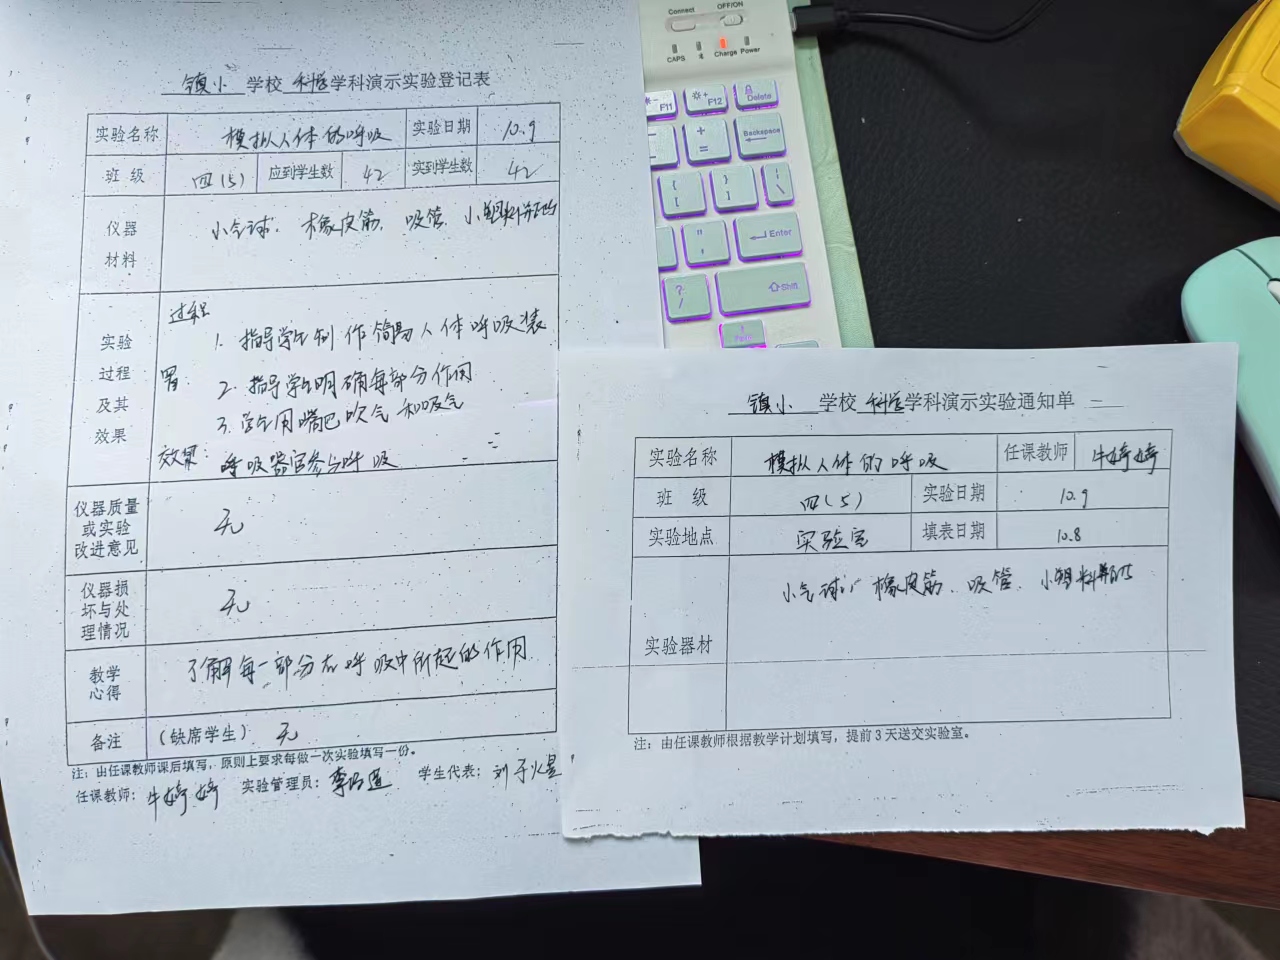 镇小 学校 科学 学科演示实验登记表
实验名称 模拟人体的呼吸 实验日期 10.9
班 级 四(5) 应到学生数 42 实到学生数 42
仪器材料 小气球、橡皮筋、吸管、小塑料瓶
实验过程及其效果
过程
1. 指导学生制作简易人体呼吸装
置.
2. 指导学生明确每部分作用
3. 学生用嘴巴吹气和吸气
效果: 呼吸器官参与呼吸
仪器质量或实验改进意见 无
仪器损坏与处理情况 无
教学心得 了解每一部分在呼吸中所起的作用
备注 (缺席学生) 无
注:由任课教师课后填写,原则上要求每做一次实验填写一份。
任课教师: 牛婷婷 实验管理员: 学生代表: 刘子煜
镇小 学校 科学 学科演示实验通知单
实验名称 模拟人体的呼吸 任课教师 牛婷婷
班 级 四(5) 实验日期 10.9
实验地点 实验室 填表日期 10.8
实验器材 小气球、橡皮筋、吸管、小塑料瓶
注:由任课教师根据教学计划填写,提前3天送交实验室。
Connect OFF/ON
CAPS Charge Power
F11 F12 Delete
+ = Backspace
{ [ } ] | \
" ' Enter
? / Shift